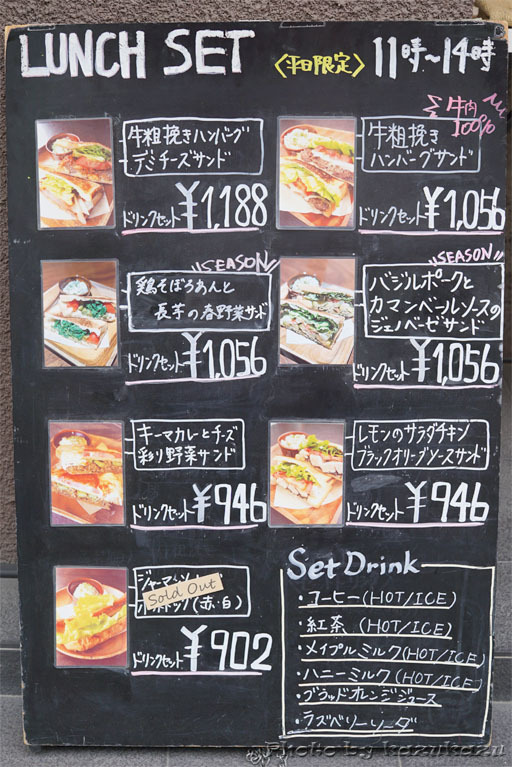 LUNCH SET 〈平日限定〉 11時〜14時
牛粗挽きハンバーグ
デミチーズサンド
ドリンクセット ¥1,188
牛肉
100%
牛粗挽き
ハンバーグサンド
ドリンクセット ¥1,056
SEASON
鶏そぼろあんと
長芋の春野菜サンド
ドリンクセット ¥1,056
SEASON
バジルポークと
カマンベールソースの
ジェノベーゼサンド
ドリンクセット ¥1,056
キーマカレーとチーズ
彩り野菜サンド
ドリンクセット ¥946
レモンのサラダチキン
ブラックオリーブソースサンド
ドリンクセット ¥946
ジャーマン
Sold Out
(赤・白)
ドリンクセット ¥902
Set Drink
・コーヒー(HOT/ICE)
・紅茶 (HOT/ICE)
・メイプルミルク(HOT/ICE)
・ハニーミルク(HOT/ICE)
・ブラッドオレンジジュース
・ラズベリーソーダ
Photo by kazukazu